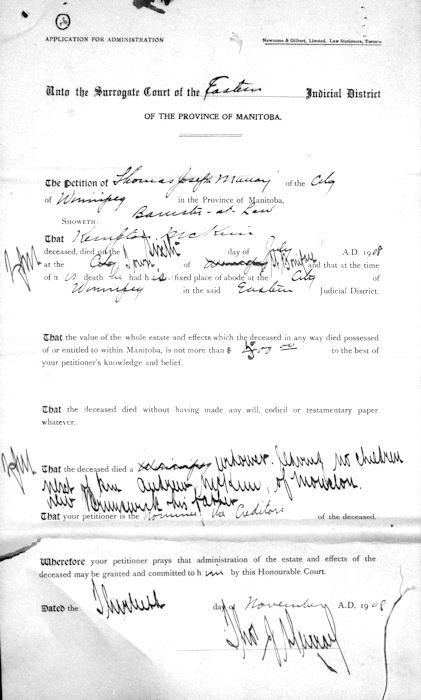 APPLICATION FOR ADMINISTRATION
Newsome & Gilbert, Limited, Law Stationers, Toronto
Unto the Surrogate Court of the Eastern Judicial District
OF THE PROVINCE OF MANITOBA.
The Petition of Thomas Joseph Murray of the City
of Winnipeg in the Province of Manitoba,
Barrister-at-Law
SHOWETH:
That McKim
deceased, died on the day of July A.D. 1908
at the Town of St Boniface and that at the time
of h is death he had h is fixed place of abode at the City of
Winnipeg in the said Eastern Judicial District.
TJM
That the value of the whole estate and effects which the deceased in any way died possessed
of or entitled to within Manitoba, is not more than $ 00 to the best of
your petitioner's knowledge and belief.
That the deceased died without having made any will, codicil or testamentary paper
whatever.
TJM
That the deceased died a widower. leaving no children
next of kin Andrew McKim, of Moncton,
New Brunswick his father
That your petitioner is the Nominee of the Creditors of the deceased.
Wherefore your petitioner prays that administration of the estate and effects of the
deceased may be granted and committed to h im by this Honourable Court.
Dated the day of November A.D. 1908
Thos J Murray